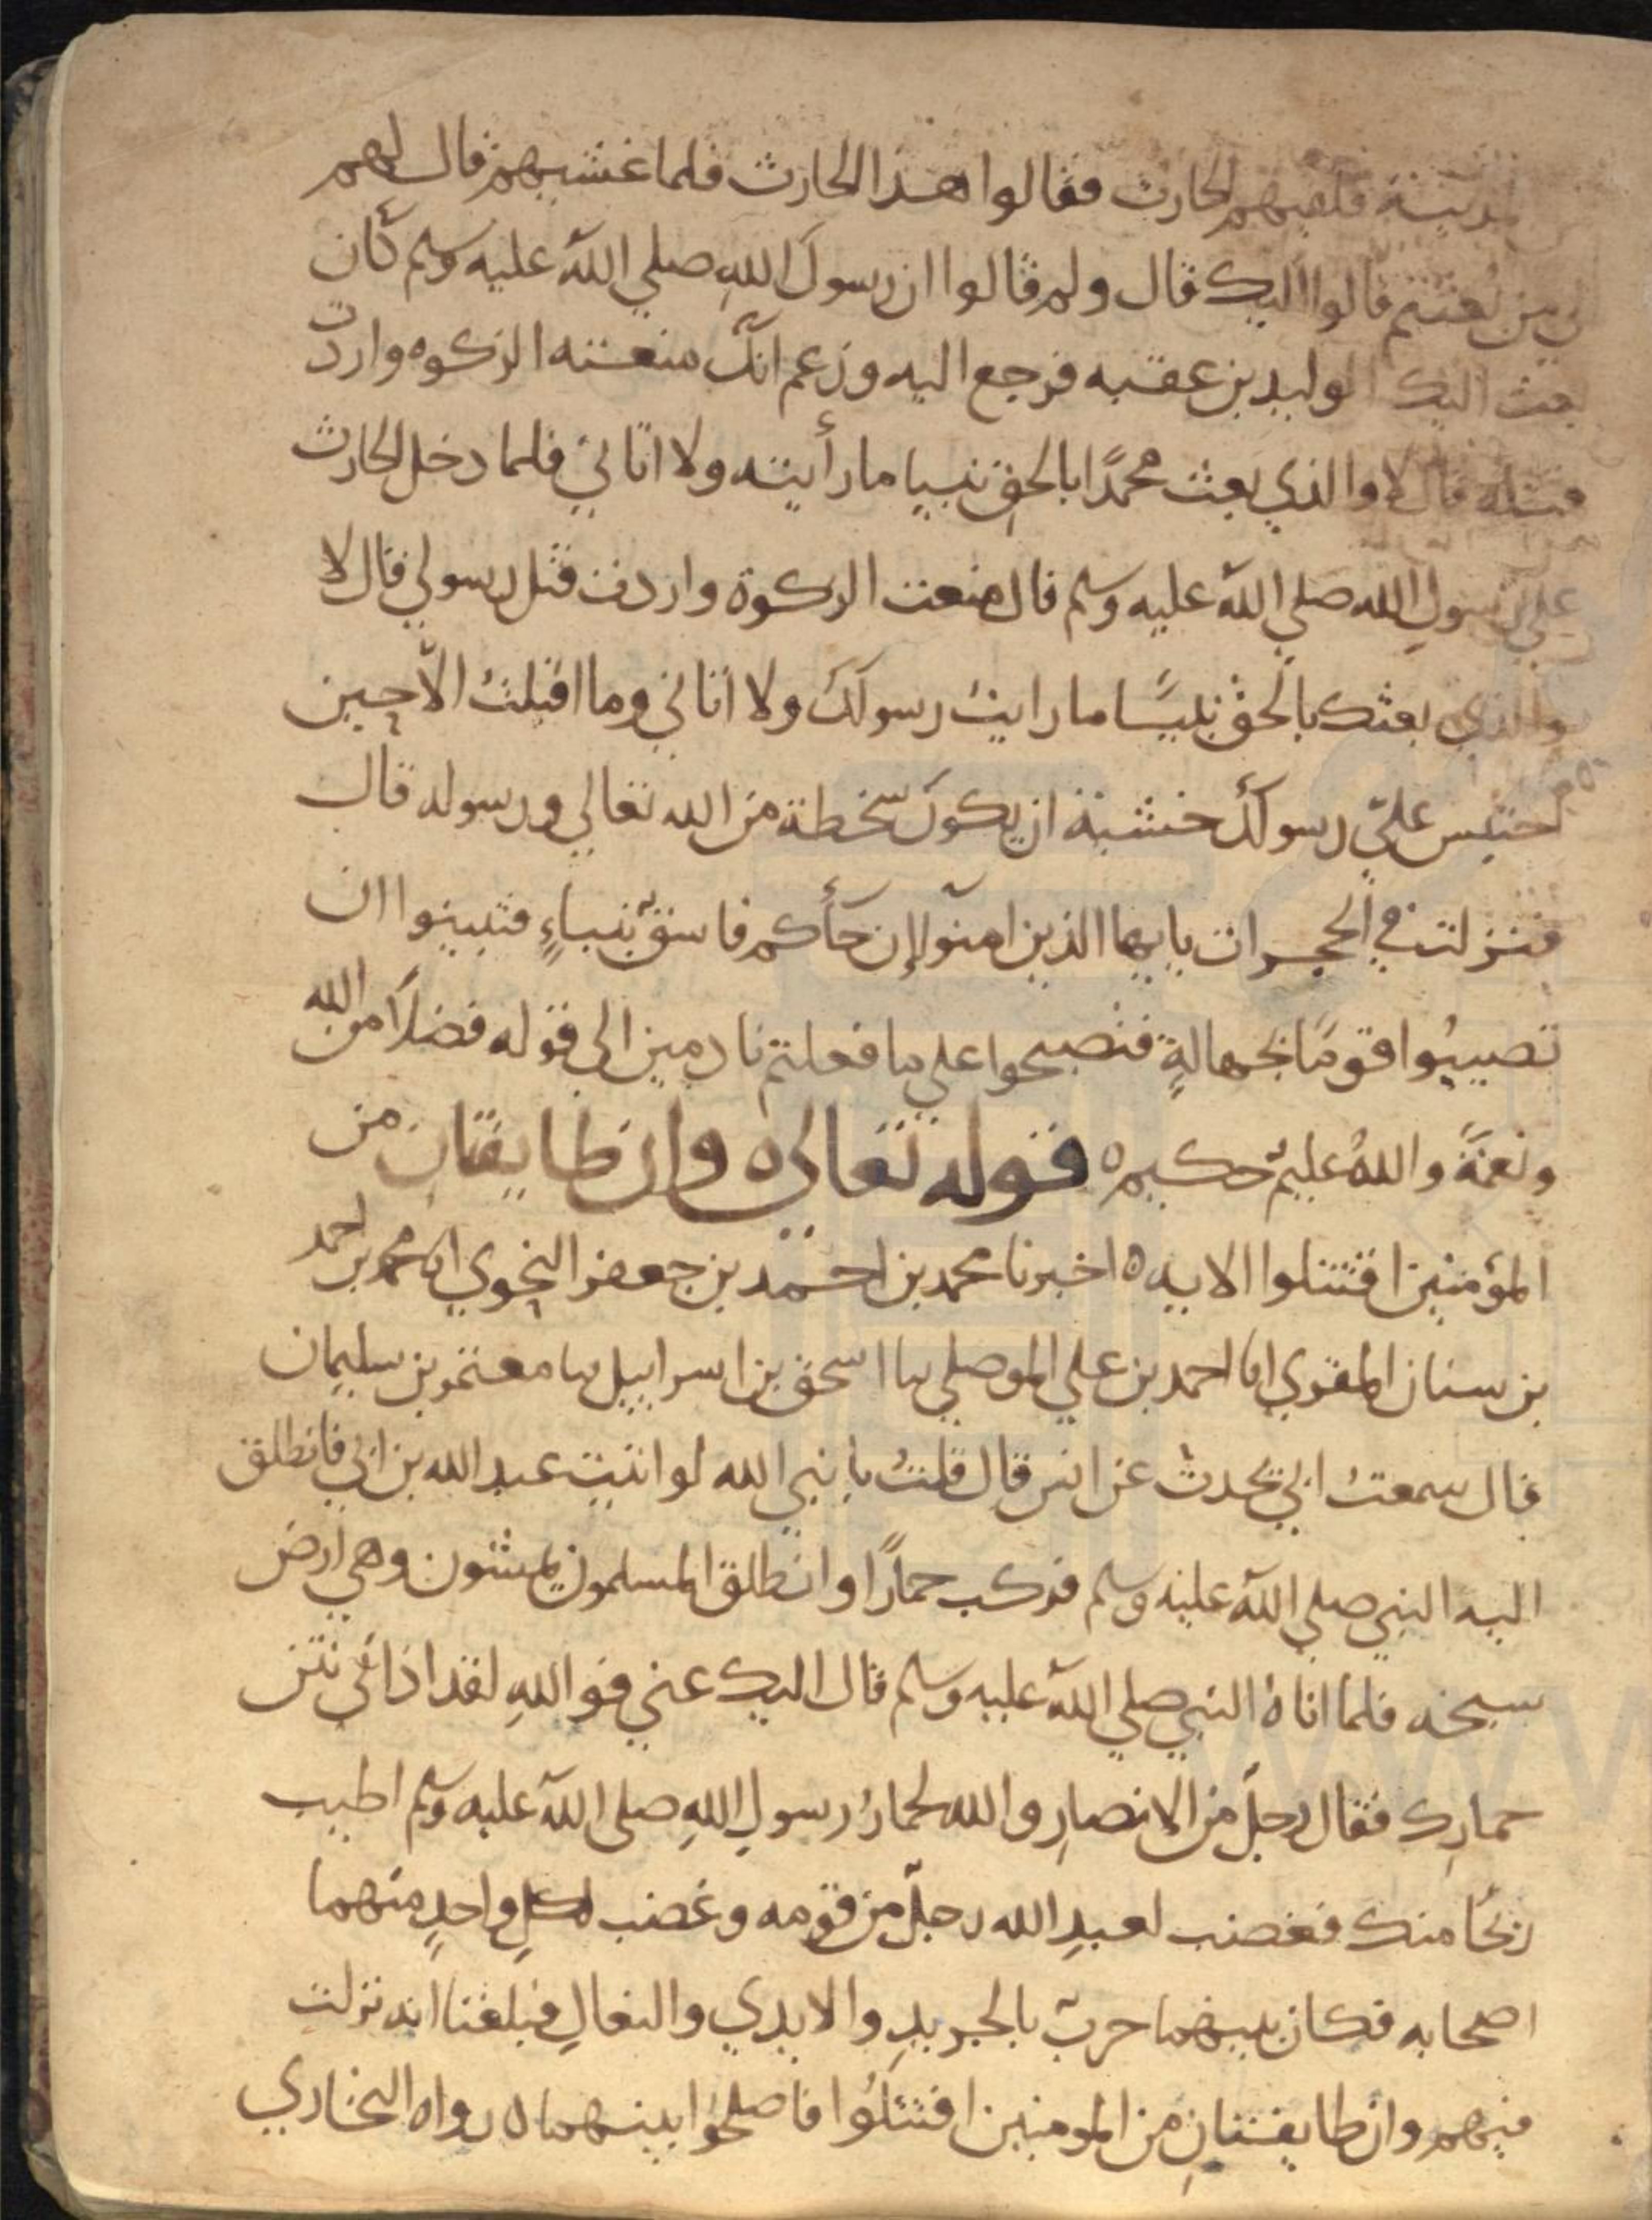 المدينة فلقيهم الحارث فقالوا هذا الحارث فلما غشيهم قال لهم
الي من بعثتم قالوا اليك قال ولم قالوا ان رسول الله صلي الله عليه وسلم كان
بعث اليك الوليد بن عقبه فرجع اليه وزعم انك منعته الزكوه واردت
قتله قال لا والذي بعث محمدًا بالحق نبيا ما رأيته ولا اتاني فلما دخل الحارث
علي رسولِ الله صلي الله عليه وسلم قال منعت الزكوة واردت قتل رسولي قال لا
والذي بعثك بالحق نبيًّا ما رايتُ رسولَك ولا اتاني وما اقبلتُ الاّ حين
احتبس عليّ رسولُك خشية ان يكون سخطة من الله تعالي ورسوله قال
فنزلت في الحجرات يايها الذين امنوا إن جأكم فاسق بنباءٍ فتبينوا ان
تصيبُوا قومًا بجهالةٍ فتصبحوا علي ما فعلتم نادمين الي قوله فضلاً من الله
ونعمَةً واللهُ عليمٌ حكيم ه قوله تعالي ه وان طايفتان من
المؤمنين اقتتلوا الايه ه اخبرنا محمد بن احمد بن جعفر النحوي انا محمد بن احمد
بن سنان المقري انا احمد بن علي الموصلي نا اسحق بن اسراييل نا معتمر بن سليمان
قال سمعتُ ابي يحدث عن انس قال قلتُ يا نبي الله لو اتيت عبد الله بن ابي فانطلق
اليه النبي صلي الله عليه وسلم فركب حمارًا وانطلق المسلمون يمشون وهي ارض
سبخه فلما اتاهُ النبي صلي الله عليه وسلم قال اليك عني فوالله لقد اذاني نتن
حمارِك فقال رجلٌ من الانصارِ والله لحمارُ رسولِ اللهِ صلى الله عليه وسلم اطيب
ريحًا منك فغضب لعبدِ الله رجلٌ من قومه وغضب لكلِ واحدٍ منهما
اصحابه فكان بينهما حربٌ بالجريدِ والايدي والنعالِ فبلغنا انه نزلت
فيهم وان طايفتانِ من المومنين اقتتلُوا فاصلحوا بينهما ه رواه البخاري